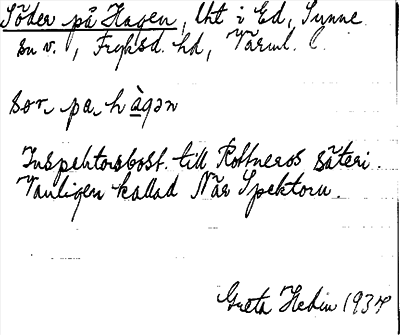 Söder på Hagen, lht i Ed, Sunne
sn v., Fryksd. hd, Värml.
sor pa hàgən
Inspektorsbost. till Rottneros säteri.
Vanligen kallad När Spektorn.
Greta Hedin 1934